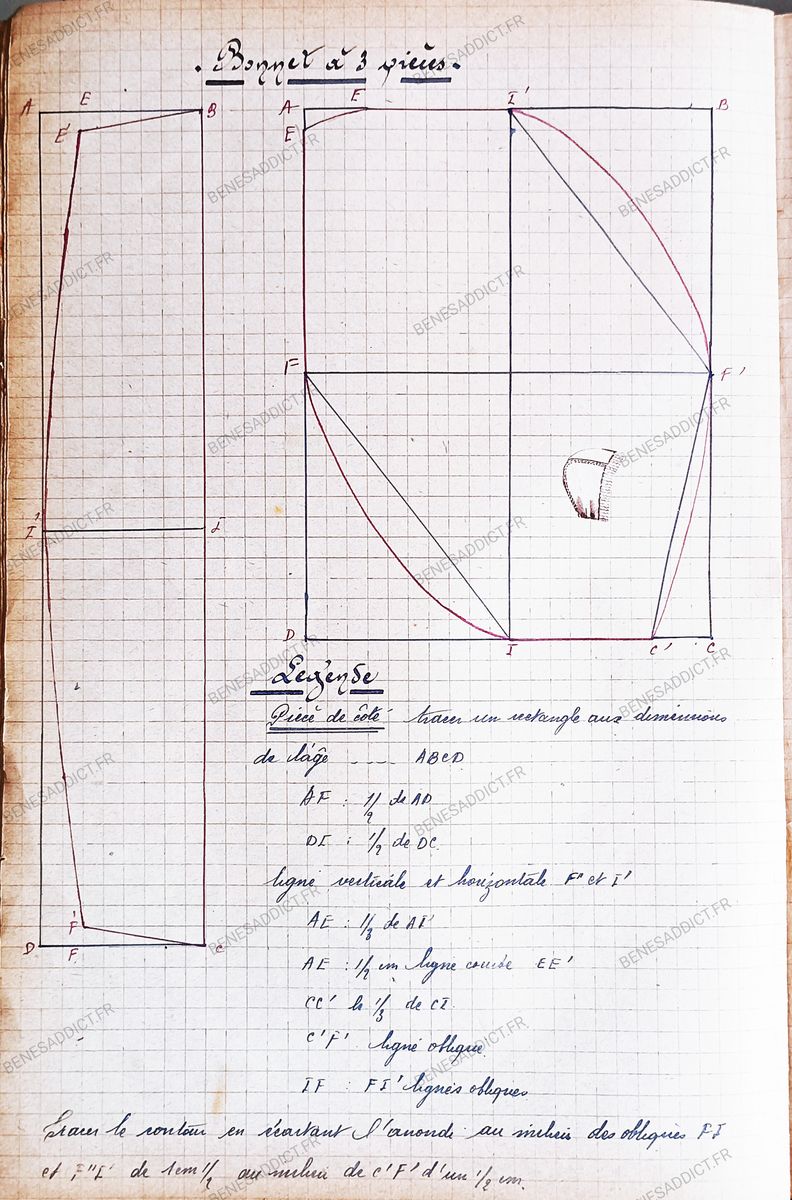 . Bonnet à 3 pièces.
A E B
E'
I' I
F'
D F C
A E I' B
E'
F F'
D I C' C
Légende
Pièce de côté tracer un rectangle aux dimensions
de l'âge ---- ABCD
AF : 1/2 de AD
DI : 1/2 de DC.
ligne verticale et horizontale F" et I'
AE : 1/3 de AI'
AE : 1/2 cm ligne courbe EE'
CC' le 1/3 de CI.
C'F' ligne oblique.
IF : FI' lignes obliques
Tracer le contour en écartant l'arrondi au milieu des obliques FI
et F"I' de 1cm 1/2 au milieu de C'F' d'un 1/2 cm.
BENESADDICT.FR